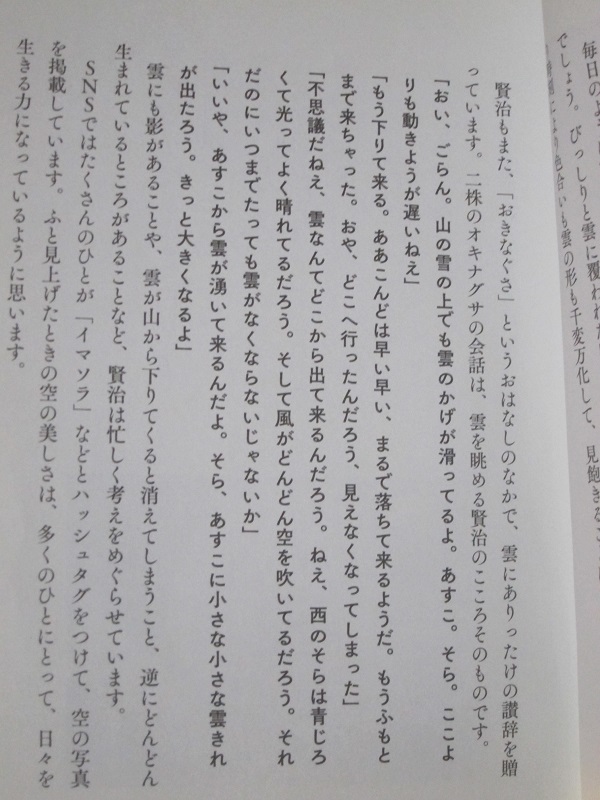 毎日のよ
でしょう。びっしりと雲に覆われた
により色合いも雲の形も千変万化して、見飽きるこ
賢治もまた、「おきなぐさ」というおはなしのなかで、雲にありったけの讃辞を贈
っています。二株のオキナグサの会話は、雲を眺める賢治のこころそのものです。
「おい、ごらん。山の雪の上でも雲のかげが滑ってるよ。あすこ。そら。ここよ
りも動きようが遅いねえ」
「もう下りて来る。ああこんどは早い早い、まるで落ちて来るようだ。もうふもと
まで来ちゃった。おや、どこへ行ったんだろう、見えなくなってしまった」
「不思議だねえ、雲なんてどこから出て来るんだろう。ねえ、西のそらは青じろ
くて光ってよく晴れてるだろう。そして風がどんどん空を吹いてるだろう。それ
だのにいつまでたっても雲がなくならないじゃないか」
「いいや、あすこから雲が湧いて来るんだよ。そら、あすこに小さな小さな雲きれ
が出たろう。きっと大きくなるよ」
雲にも影があることや、雲が山から下りてくると消えてしまうこと、逆にどんどん
生まれているところがあることなど、賢治は忙しく考えをめぐらせています。
SNSではたくさんのひとが「イマソラ」などとハッシュタグをつけて、空の写真
を掲載しています。ふと見上げたときの空の美しさは、多くのひとにとって、日々を
生きる力になっているように思います。